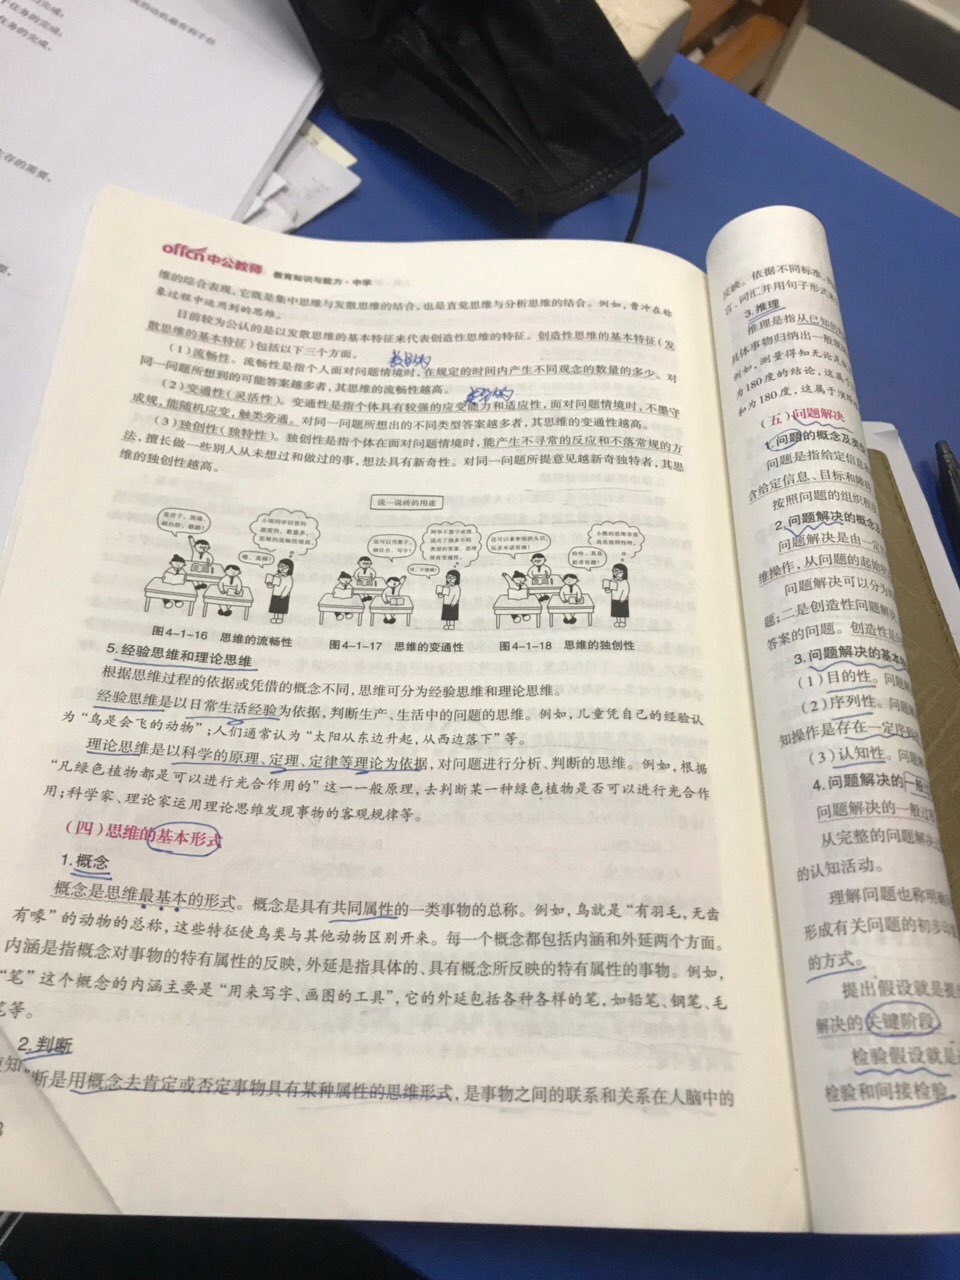 offcn中公教师 教育知识与能力·中学
维的综合表现,它既是集中思维与发散思维的结合,也是直觉思维与分析思维的结合。例如,曹冲在称
象过程中运用到的思维。
目前较为公认的是以发散思维的基本特征来代表创造性思维的特征。创造性思维的基本特征(发
散思维的基本特征)包括以下三个方面。
(1)流畅性。流畅性是指个人面对问题情境时,在规定的时间内产生不同观念的数量的多少。对
同一问题所想到的可能答案越多者,其思维的流畅性越高。
(2)变通性(灵活性)。变通性是指个体具有较强的应变能力和适应性,面对问题情境时,不墨守
成规,能随机应变,触类旁通。对同一问题所想出的不同类型答案越多者,其思维的变通性越高。
(3)独创性(独特性)。独创性是指个体在面对问题情境时,能产生不寻常的反应和不落常规的方
法,擅长做一些别人从未想过和做过的事,想法具有新奇性。对同一问题所提意见越新奇独特者,其思
维的独创性越高。
说一说砖的用途
图4-1-16 思维的流畅性
图4-1-17 思维的变通性
图4-1-18 思维的独创性
5.经验思维和理论思维
根据思维过程的依据或凭借的概念不同,思维可分为经验思维和理论思维。
经验思维是以日常生活经验为依据,判断生产、生活中的问题的思维。例如,儿童凭自己的经验认
为“鸟是会飞的动物”;人们通常认为“太阳从东边升起,从西边落下”等。
理论思维是以科学的原理、定理、定律等理论为依据,对问题进行分析、判断的思维。例如,根据
“凡绿色植物都是可以进行光合作用的”这一一般原理,去判断某一种绿色植物是否可以进行光合作
用;科学家、理论家运用理论思维发现事物的客观规律等。
(四)思维的基本形式
1.概念
概念是思维最基本的形式。概念是具有共同属性的一类事物的总称。例如,鸟就是“有羽毛,无齿
有喙”的动物的总称,这些特征使鸟类与其他动物区别开来。每一个概念都包括内涵和外延两个方面。
内涵是指概念对事物的特有属性的反映,外延是指具体的、具有概念所反映的特有属性的事物。例如,
“笔”这个概念的内涵主要是“用来写字、画图的工具”,它的外延包括各种各样的笔,如铅笔、钢笔、毛
笔等。
2.判断
断是用概念去肯定或否定事物具有某种属性的思维形式,是事物之间的联系和关系在人脑中的
反映。依据不同标准
词汇并用句子形式
3.推理
推理是指从已知的
具体事物归纳出一般规
例如,测量得知无论是
为180度的结论,这是
和为180度,这属于演绎
(五)问题解决
1.问题的概念及
问题是指给定信息
含给定信息、目标和障
按照问题的组织
2.问题解决的概念
问题解决是由一定
维操作,从问题的起始
问题解决可以分为
题;二是创造性问题解
答案的问题。创造性
3.问题解决的基本
(1)目的性。问题
(2)序列性。问题
知操作是存在一定序
(3)认知性。问题
4.问题解决的一般
问题解决的一般过
从完整的问题解决
的认知活动。
理解问题也称明确
形成有关问题的初步印
的方式。
提出假设就是提
解决的关键阶段
检验假设就是
检验和间接检验